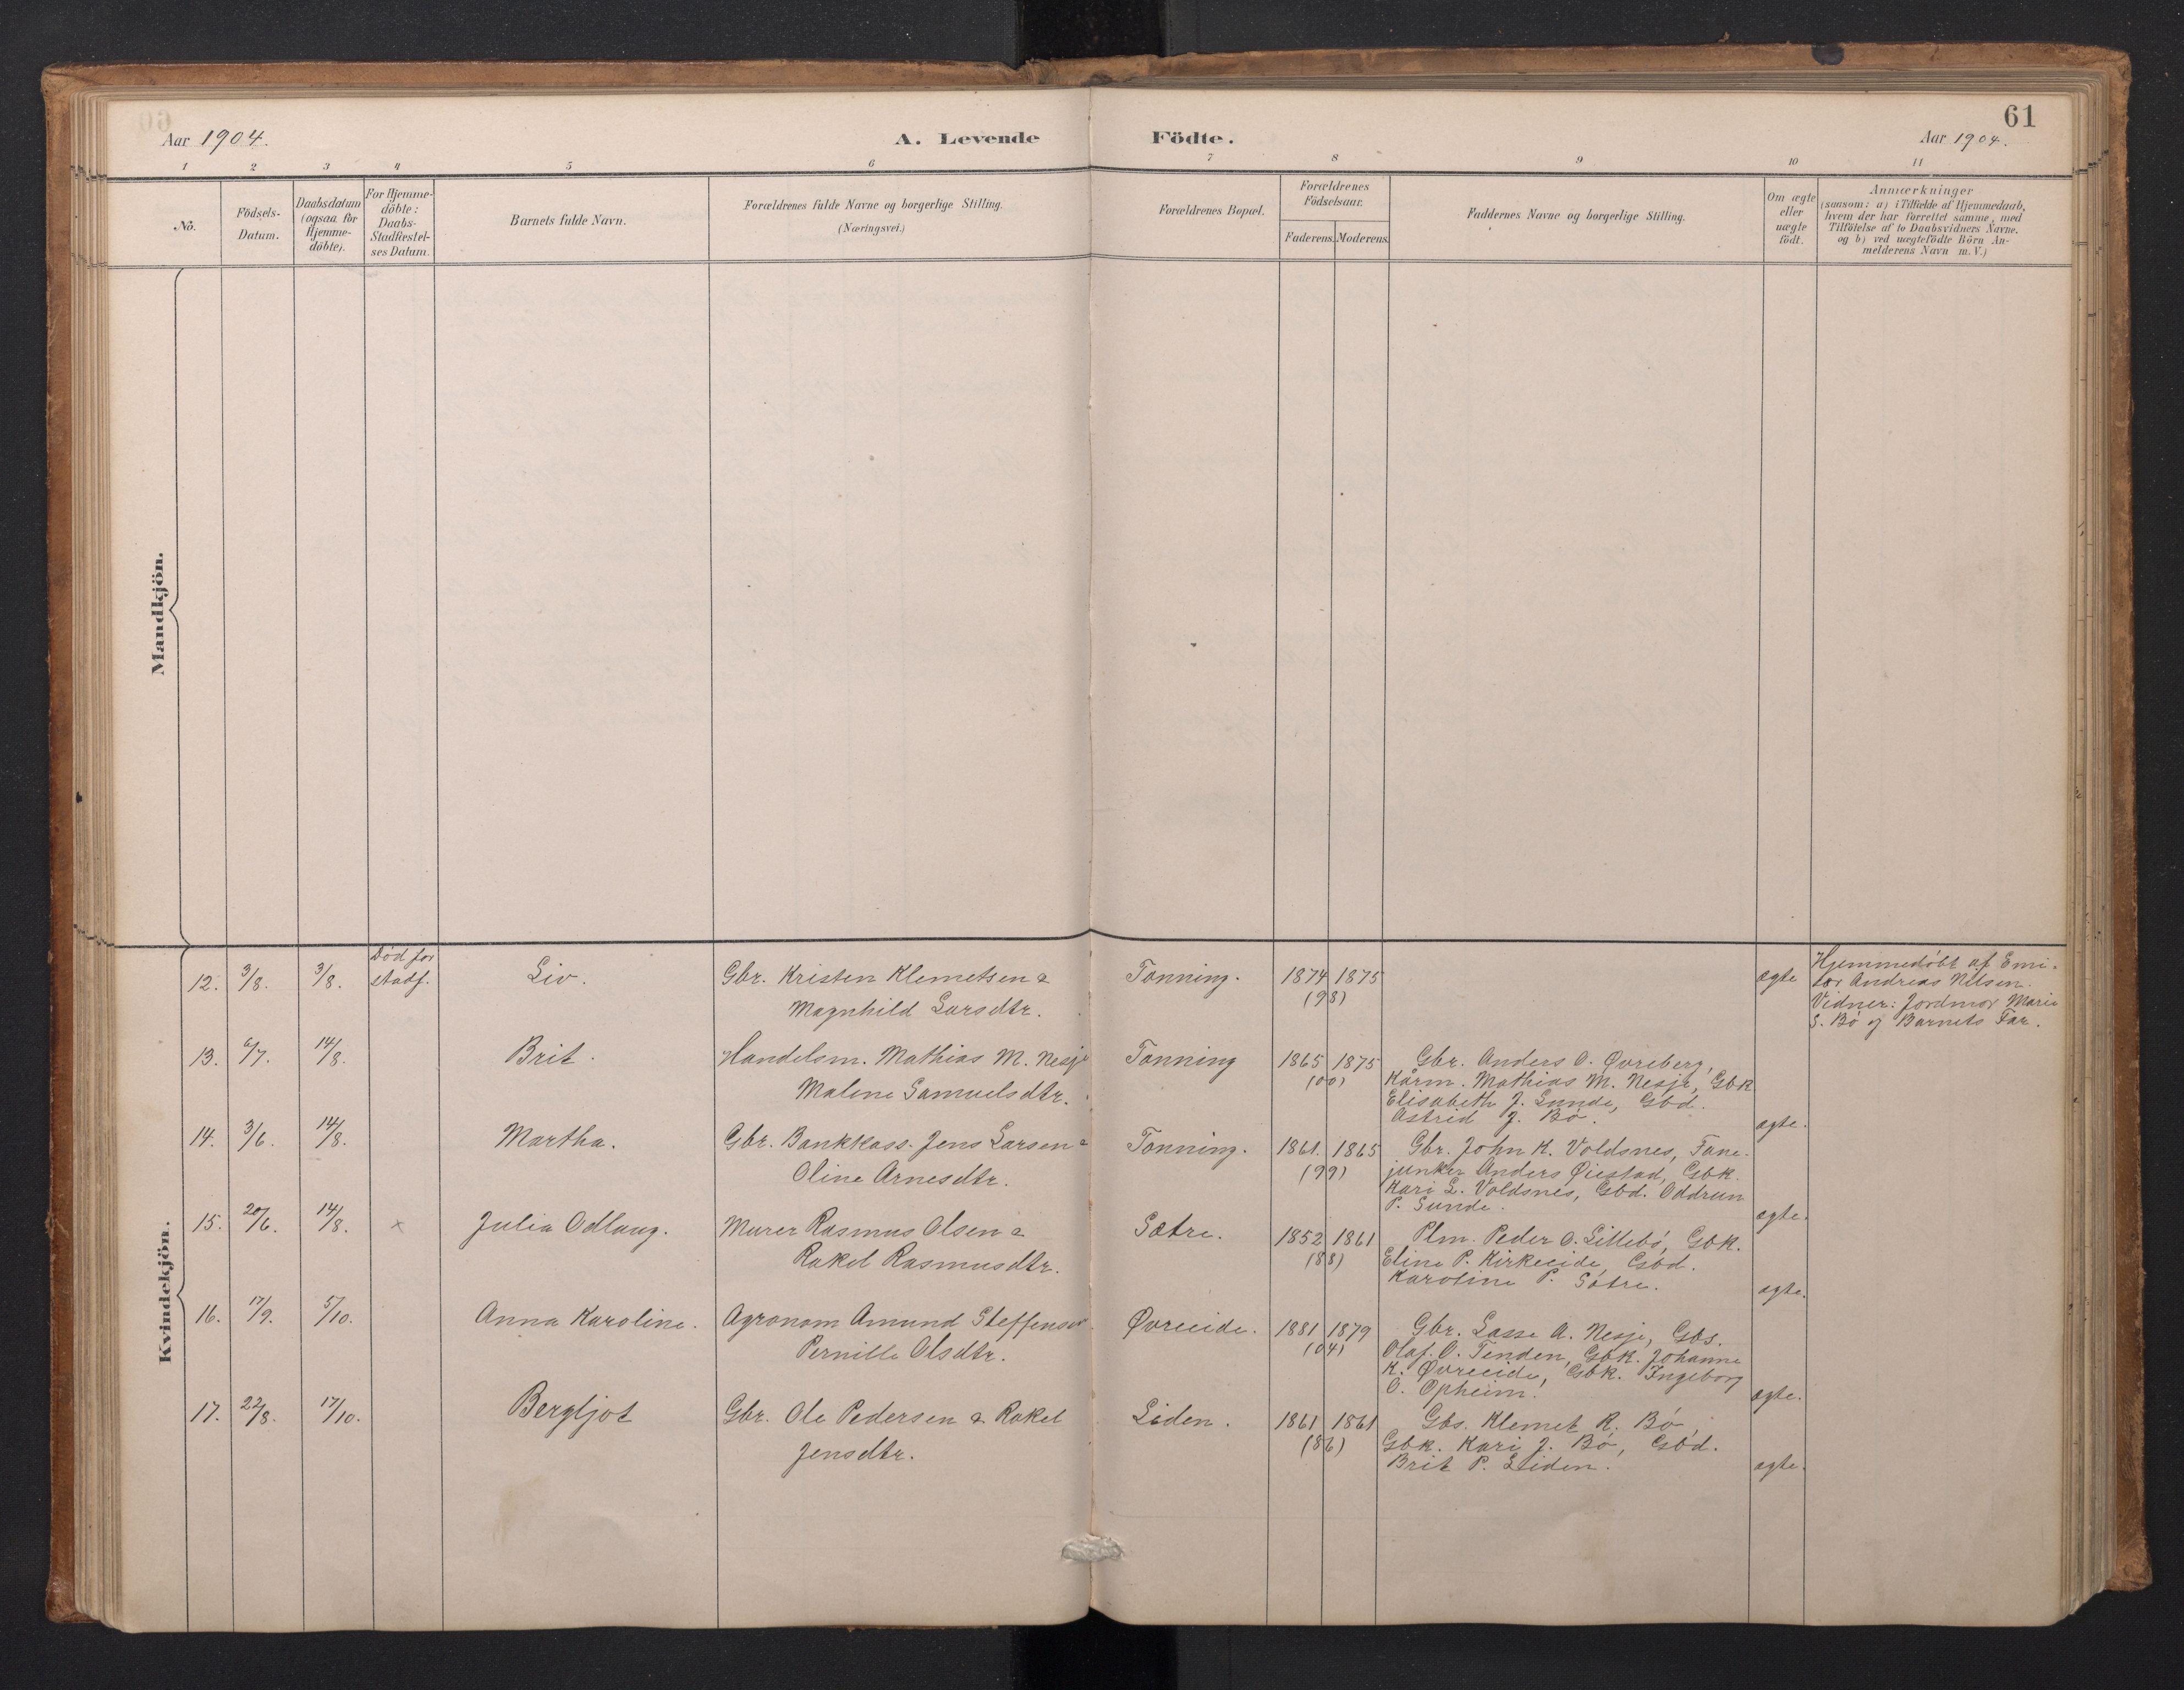 61
Aar 1904.
A. Levende Födte.
Aar 1904.
1 2 3 4 5 6 7 8 9 10 11
No.
Födsels-Datum.
Daabsdatum (ogsaa for Hjemme-döbte).
For Hjemme-döbte: Daabs-Stadfæstel-ses Datum.
Barnets fulde Navn.
Forældrenes fulde Navne og borgerlige Stilling.
(Næringsvei.)
Forældrenes Bopæl.
Forældrenes Födselsaar.
Faderens. Moderens.
Faddernes Navne og borgerlige Stilling.
Om ægte eller uægte födt.
Anmærkninger
(saasom: a) i Tilfælde af Hjemmedaab,
hvem der har forrettet samme, med
Tilföielse af to Daabsvidners Navne.
og b) ved uægtefödte Börn An-
melderens Navn m. V.)
Mandkjön.
Kvindekjön.
12. 3/8. 3/8. Död før stadf. Liv. Gbr. Kristen Klemetsen & Tonning. 1874 1875 ægte Hjemmedöbt af Emi-
Magnhild Larsdtr. (98) sær Andreas Nilsen.
Vidner: Jordmor Marie
S. Bö og Barnets Far.
13. 6/7. 14/8. Brit. Handelsm. Mathias M. Nesje Tonning 1865 1875 Gbr. Anders O. Øvreberg,
Malene Samuelsdtr. (00) Kårm. Mathias M. Nesje, Gbk
Elisabeth J. Sunde, Gbd.
Astrid J. Bö. ægte.
14. 3/6. 14/8. Martha. Gbr. Bankkass. Jens Larsen & Tonning. 1861. 1865 Gbr. John K. Voldsnes, Fane-
Oline Arnesdtr. (99) junker Anders Øiestad, Gbk.
Kari L. Voldsnes, Gbd. Oddrun
P. Sunde. ægte.
15. 20/6. 14/8. x Julia Odlaug. Murer Rasmus Olsen & Sætre. 1852 1861 Plm. Peder O. Lillebö, Gbk.
Rakel Rasmusdtr. (88) Eline P. Kirkeeide, Gbd.
Karoline P. Sätre. ægte.
16. 17/9. 5/10. Anna Karoline. Agronom Amund Steffensen Øvreeide. 1881 1879 Gbr. Lasse A. Nesje, Gbs.
Pernille Olsdtr. (04) Olaf O. Tenden, Gbk. Johanne
K. Øvreeide, Gbk. Ingeborg
O. Opheim. ægte.
17. 22/8. 17/10. Bergljot Gbr. Ole Pedersen & Rakel Liden. 1861 1861 Gbs. Klemet R. Bö,
Jensdtr. (86) Gbk. Kari J. Bö, Gbd.
Brit P. Liden. ægte.